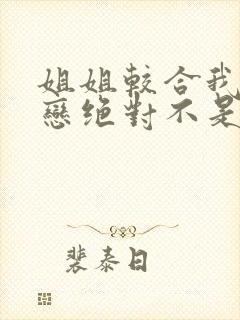 姐姐較合我
戀绝對不是
裴泰日